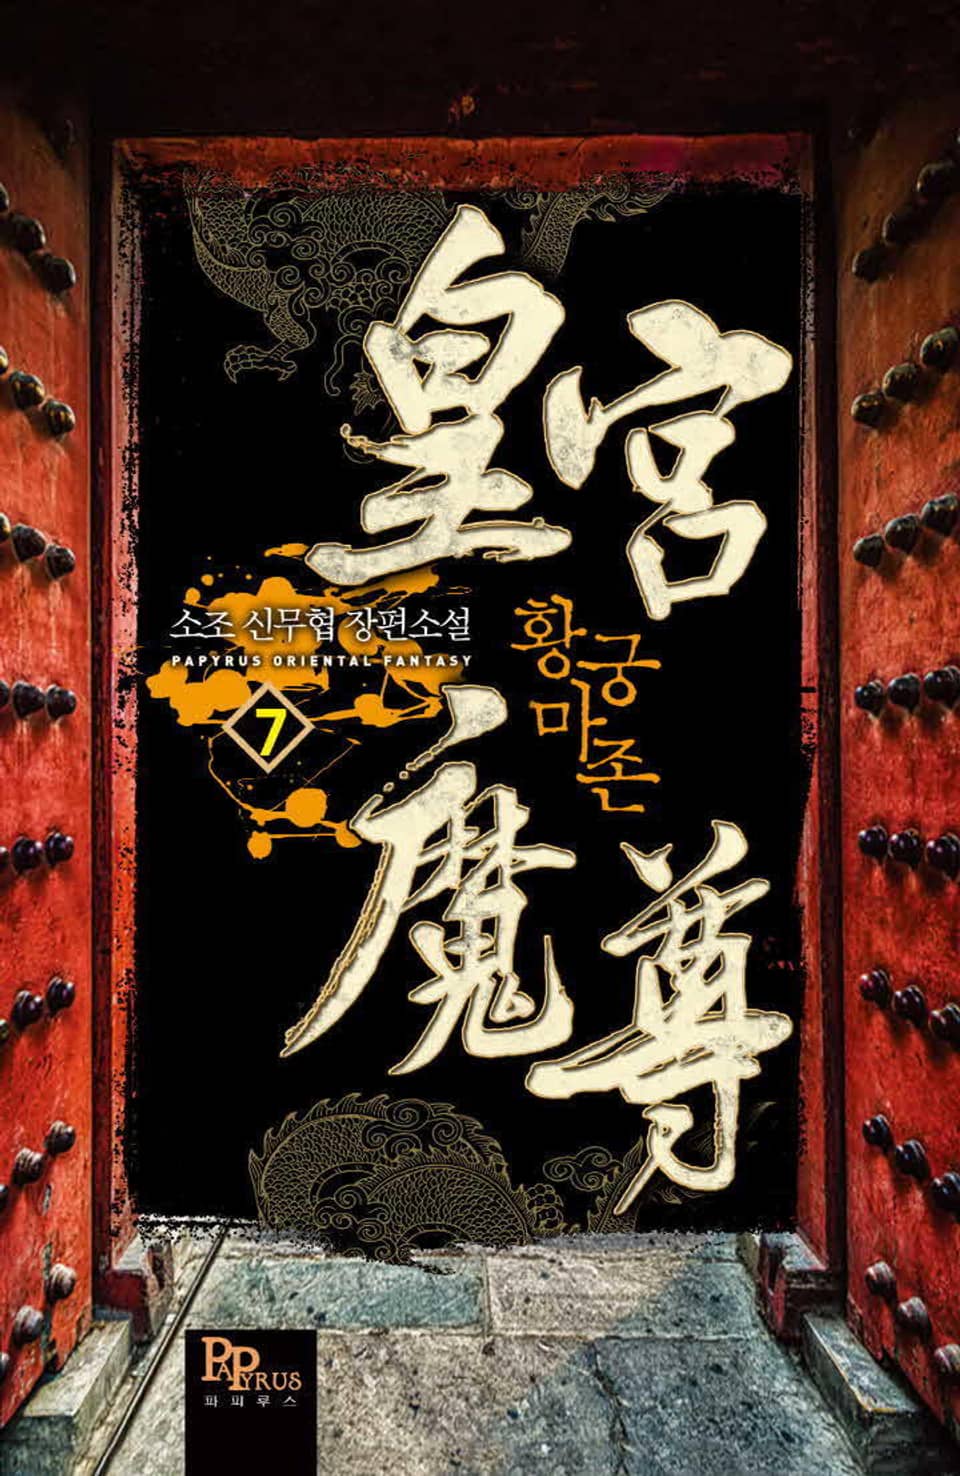 皇宮
소조 신무협 장편소설
PAPYRUS ORIENTAL FANTASY
7
황궁
마존
魔尊
PAPYRUS
파피루스